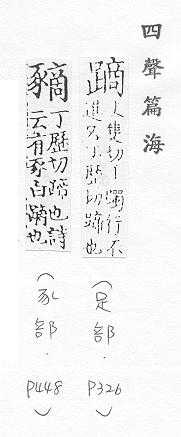 四聲篇海
蹢丈隻切丨躅行不
進又丁歷切蹄也
(足部.P326)
豴丁歷切蹄也詩
云有豕白蹢也
(豕部.P448)